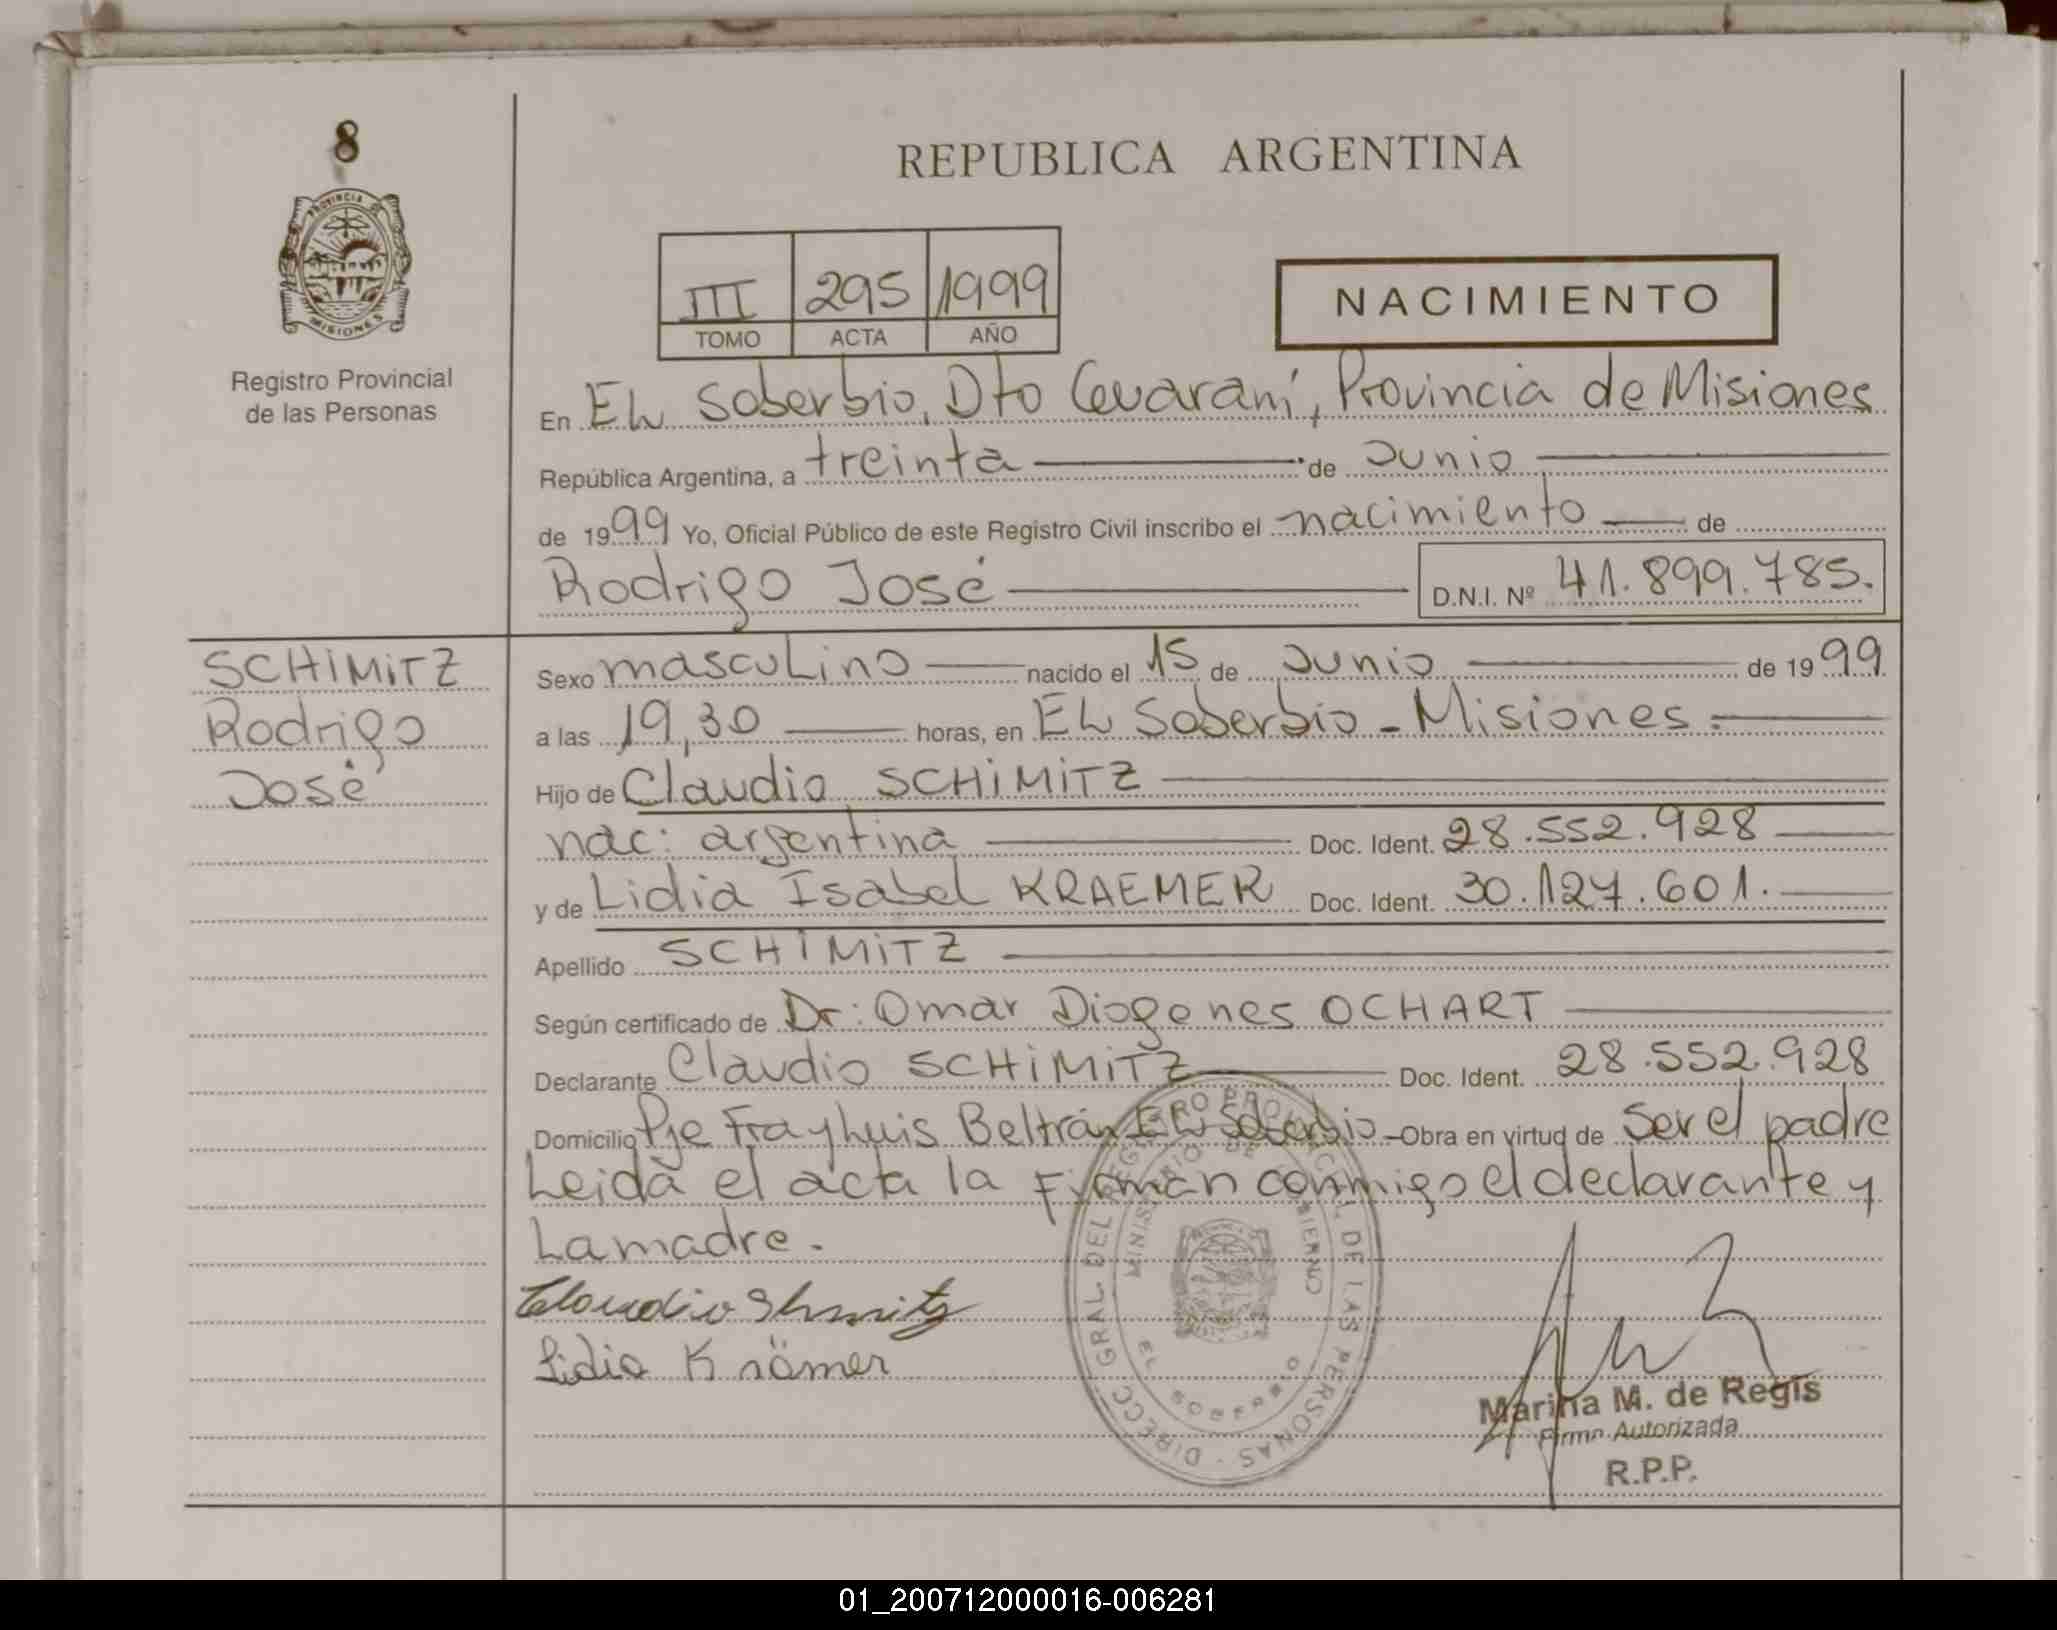 8
PROVINCIA DE
MISIONES
Registro Provincial
de las Personas
REPUBLICA ARGENTINA
III 295 1999
TOMO ACTA AÑO
NACIMIENTO
En El Soberbio, Dto Guaraní, Provincia de Misiones
República Argentina, a treinta de Junio
de 1999 Yo, Oficial Público de este Registro Civil inscribo el nacimiento de
Rodrigo José D.N.I. Nº 41.899.785.
SCHIMITZ
Rodrigo
José
Sexo masculino nacido el 15 de Junio de 1999
a las 19,30 horas, en El Soberbio - Misiones.
Hijo de Claudio SCHIMITZ
nac: argentina Doc. Ident. 28.552.928
y de Lidia Isabel KRAEMER Doc. Ident. 30.127.601.
Apellido SCHIMITZ
Según certificado de Dr: Omar Diogenes OCHART
Declarante Claudio SCHIMITZ Doc. Ident. 28.552.928
Domicilio Pje Fray Luis Beltrán El Soberbio - Obra en virtud de Ser el padre
Leida el acta la Firman conmigo el declarante y
La madre.
Claudio Shmitz
Lidia Krämer
DIRECC GRAL. DEL REGISTRO PROVINCIAL DE LAS PERSONAS -
MINISTERIO DE GOBIERNO
EL SOBERBIO
Marina M. de Regis
Firma Autorizada
R.P.P.
01_200712000016-006281